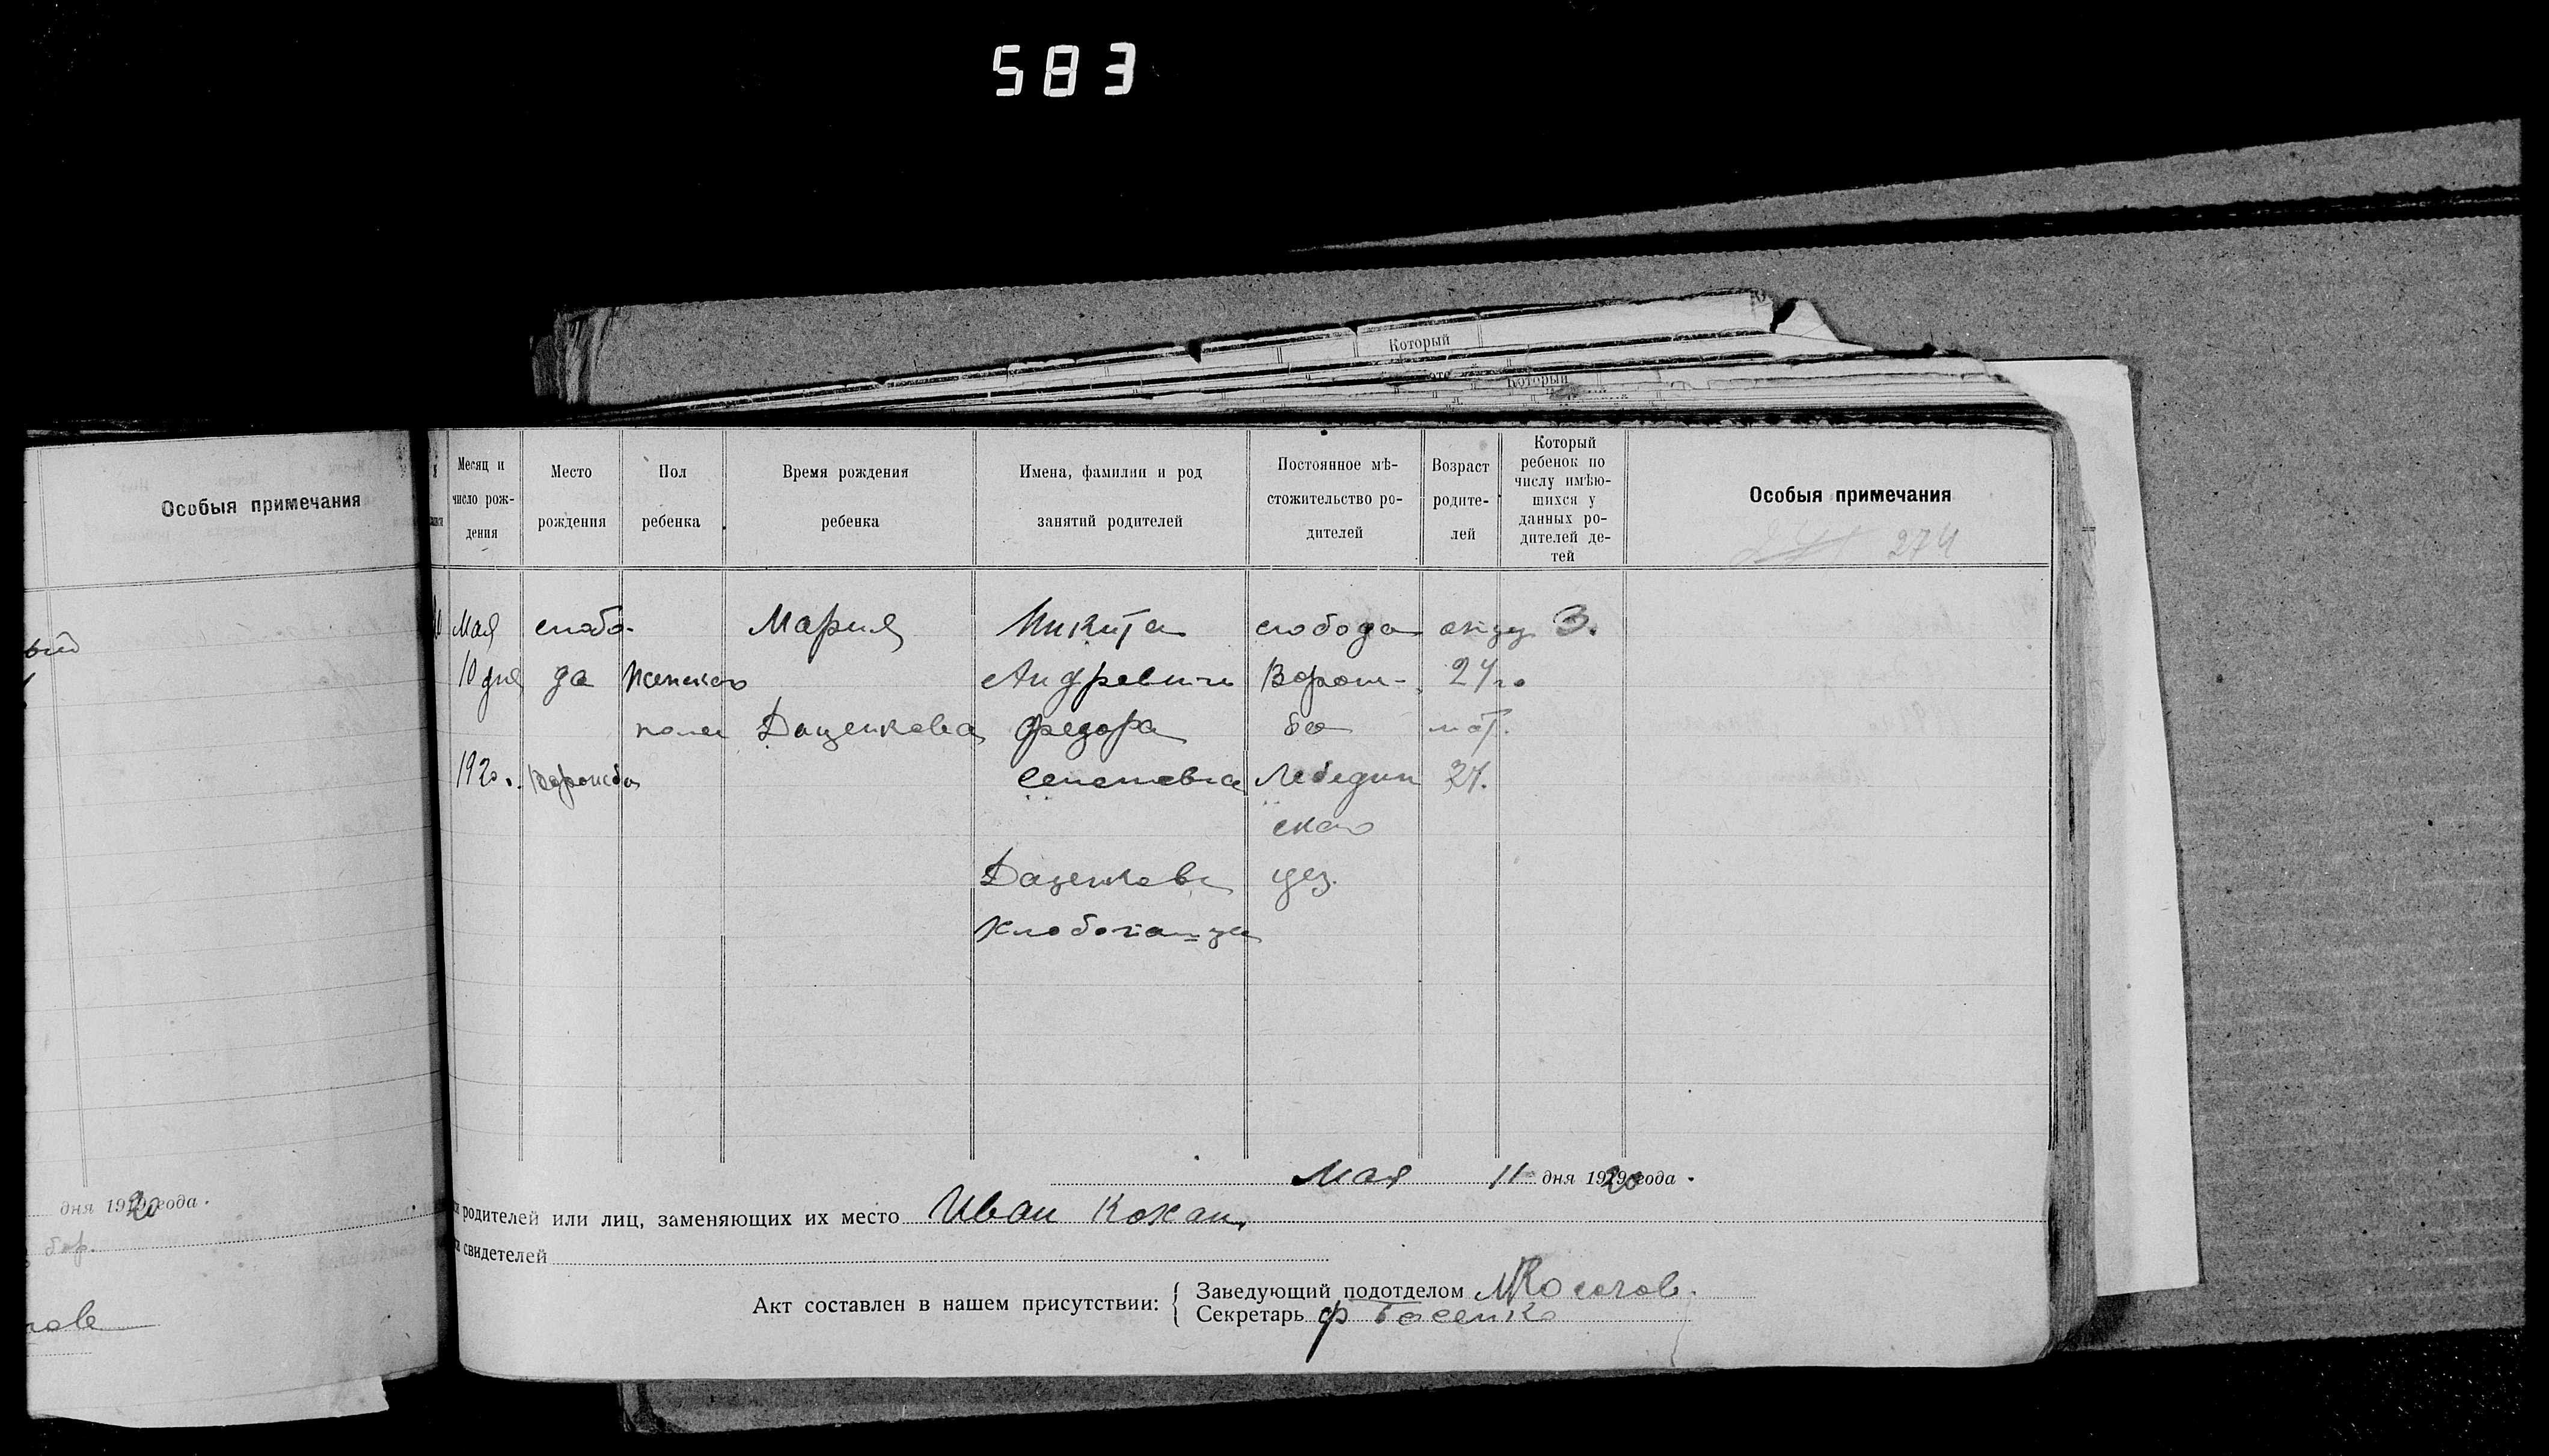 583
Который
Который
Особыя примечания
дня 1920 года.
Месяц и число рождения
Место рождения
Пол ребенка
Время рождения ребенка
Имена, фамилии и род занятий родителей
Постоянное мѣстожительство родителей
Возраст родителей
Который ребенок по числу имѣющихся у данных родителей детей
Особыя примечания
274
Мая слобо- Мария Микита слобода отцу 3.
10 дня да женского Андревич Ворож- 27
пола Даценкова Федора ба мат.
1920. Ворожба Семеновна Лебедин 27.
ского
Даценкови уез.
Хлебопашци
Мая 11 дня 1920 года.
родителей или лиц, заменяющих их место Иван Кохан
свидетелей
Акт составлен в нашем присутствии: Заведующий подотделом
Секретарь